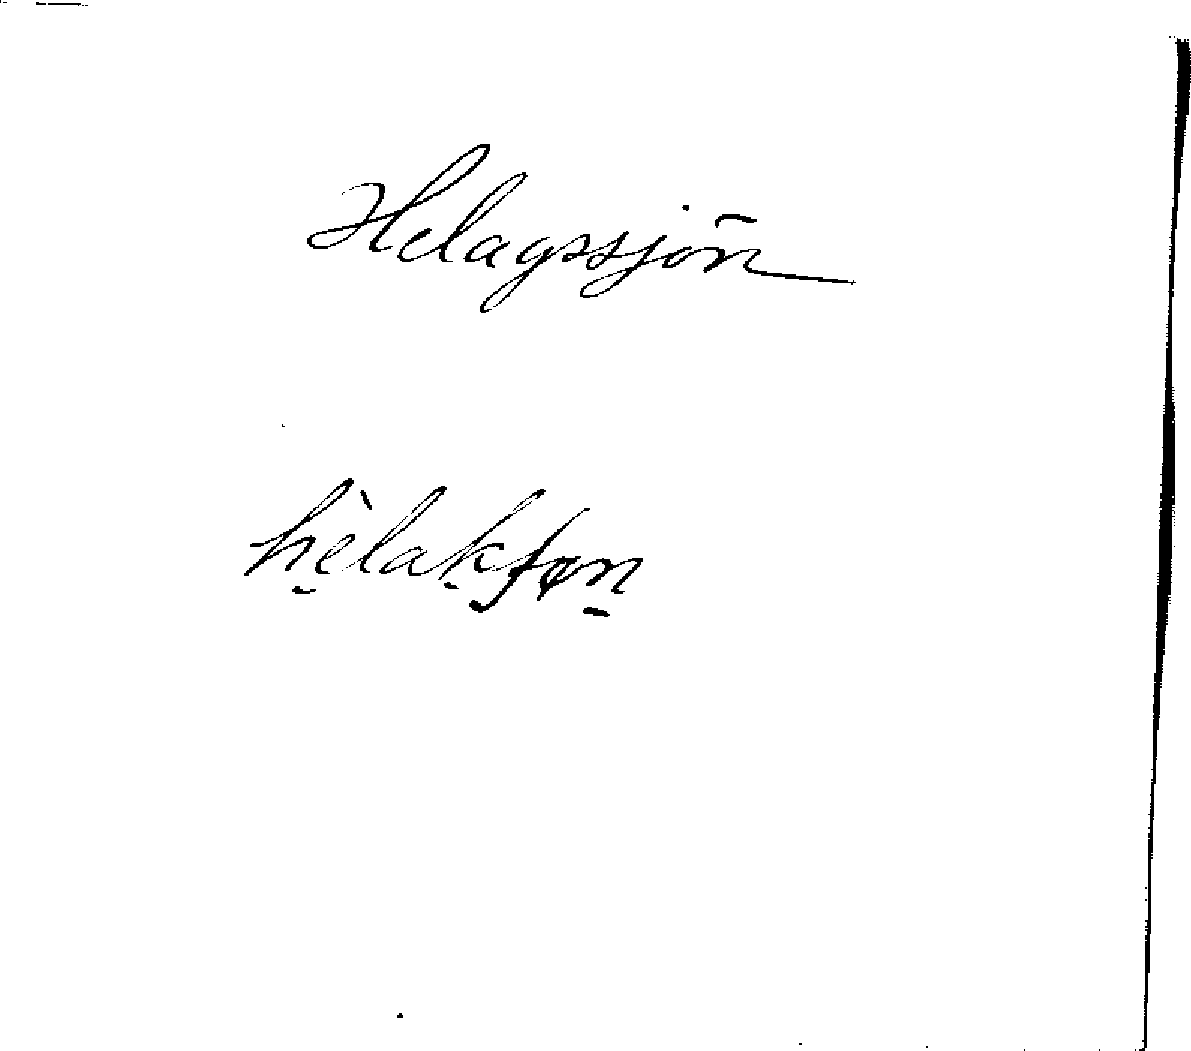 Helagssjön
hèlakʃøn